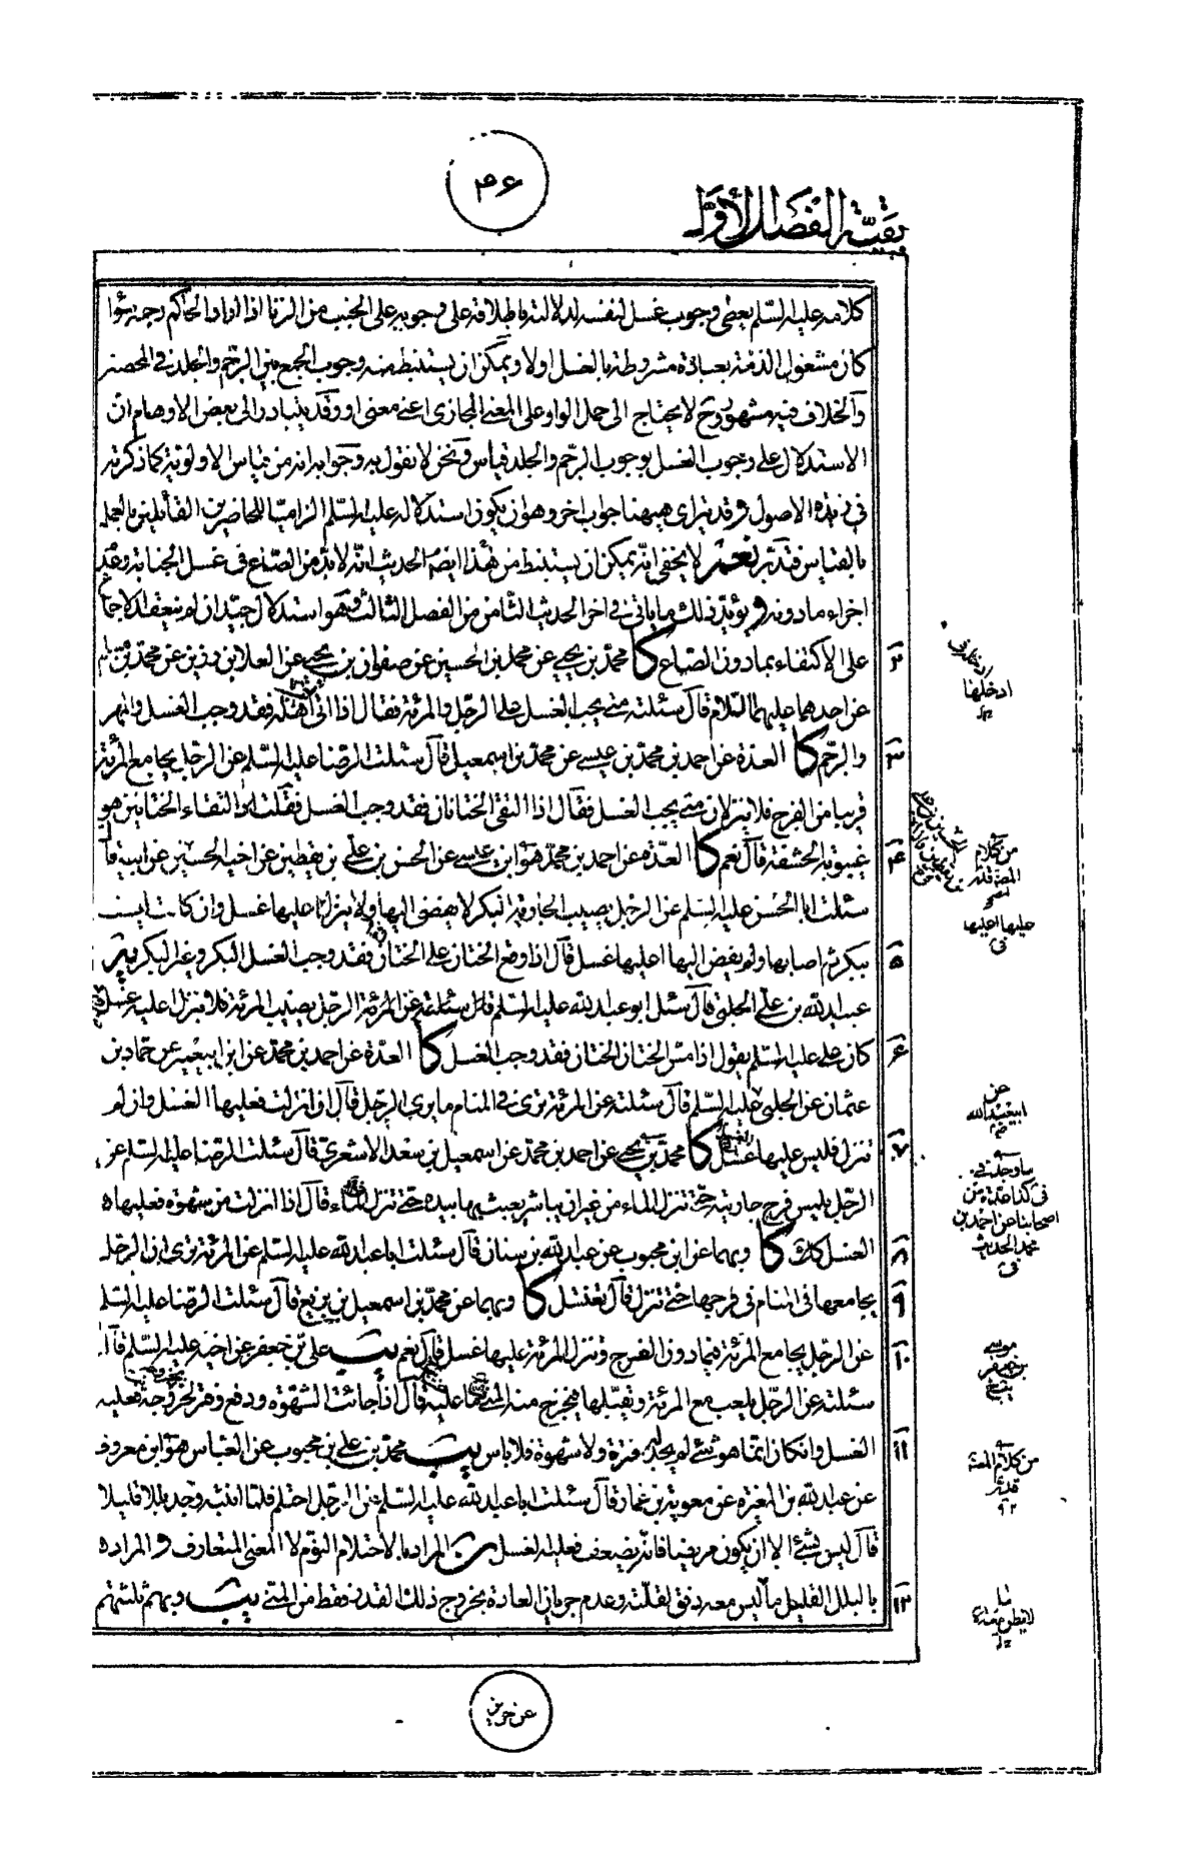 ۴۶
بقية الفصل الأول
كلامه عليه السلم يعطى وجوب غسل لنفسه لدلالته باطلاقه على وجوبه على الجنب من الزنا اذا اراد الحاكم رجمه سؤا
كان مشغول الذمة بعبادة مشروطة بالغسل اولا ويمكن ان يستنبط منه وجوب الجمع بين الرجم والجلد في المحصن
والخلاف فيه مشهور وح لا يحتاج الى حمل الواو على المعنى المجازى اعنى معنى او وقد يتبادر الى بعض الاوهام ان
الاستدلال على وجوب الغسل بوجوب الرجم والجلد قياس ونحن لا نقول به وجوابه انه من قياس الاولوية كما ذكرته
في زبدة الاصول وقد يراى هيهنا جواب اخر وهو ان يكون استدلاله عليه السلم الزاميا للحاضرين القائلين بالعمل
بالقياس فتدبر نعم لا يخفى انه يمكن ان يستنبط من هذا ايضا الحديث انه لا بد من الصاع في غسل الجنابة وعدم
اجزاء ما دونه و يؤيد ذلك ما ياتى في اخر الحديث الثامن من الفصل الثالث وهو استدلال جيد ان لم ينعقد الاجماع
على الاكتفاء بما دون الصاع كا محمد بن يحيى عن محمد بن الحسين عن صفوان بن يحيى عن العلا بن رزين عن محمد بن مسلم
عن احدهما عليهما السلام قال سئلته متى يجب الغسل على الرجل والمرئة فقال اذا ادخله فقد وجب الغسل والمهر
والرجم كا العدة عن احمد بن محمد بن عيسى عن محمد بن اسمعيل قال سئلت الرضا عليه السلم عن الرجل يجامع المرئة
قريبا من الفرج فلا ينزلان متى يجب الغسل فقال اذا التقى الختانان فقد وجب الغسل فقلت التقاء الختانين هو
غيبوبة الحشفة قال نعم كا العدة عن احمد بن محمد هو ابن عيسى عن الحسن بن على بن يقطين عن اخيه الحسين عن ابيه قال
سئلت ابا الحسن عليه السلم عن الرجل يصيب الجارية البكر لا يفضى اليها ولا ينزل اعليها غسل وان كانت ليست
ببكر ثم اصابها ولم يفض اليها اعليها غسل قال اذا وقع الختان على الختان فقد وجب الغسل البكر وغير البكر
عبيد الله بن على الحلبى قال سئل ابو عبد الله عليه السلم عن الرجل يصيب المرئة فلا ينزل اعليه غسل قال
كان على عليه السلم يقول اذا مس الختان الختان فقد وجب الغسل كا العدة عن احمد بن محمد عن ابن ابى عمير عن حماد بن
عثمان عن الحلبى عليه السلم قال سئلته عن المرئة ترى في المنام ما يرى الرجل قال ان انزلت فعليها الغسل وان لم
تنزل فليس عليها غسل كا محمد بن يحيى عن احمد بن محمد عن اسمعيل بن سعد الاشعرى قال سئلت الرضا عليه السلم عن
الرجل يلمس فرج جاريته حتى تنزل الماء من غير ان يباشر يعبث بها بيده حتى تنزل قال اذا انزلت من شهوة فعليها
الغسل كا وبهما عن ابن محبوب عن عبد الله بن سنان قال سئلت ابا عبد الله عليه السلم عن المرئة ترى ان الرجل
يجامعها في المنام في فرجها حتى تنزل قال تغتسل كا وبهما عن محمد بن اسمعيل بن بزيع قال سئلت الرضا عليه السلم
عن الرجل يجامع المرئة فيما دون الفرج وتنزل المرئة عليها غسل قال نعم يب على بن جعفر عن اخيه عليه السلم قال
سئلته عن الرجل يلعب مع المرئة و يقبلها فيخرج منه المنى فما عليه قال اذا جائت الشهوة ودفع وفتر لخروجه فعليه
الغسل وان كان انما هو شئ لم يجد له فترة ولا شهوة فلا باس يب محمد بن على بن محبوب عن العباس هو ابن معروف
عن عبد الله بن المغيرة عن معوية بن عمار قال سئلت ابا عبد الله عليه السلم عن الرجل احتلم فلما انتبه وجد بللا قليلا
قال ليس بشئ الا ان يكون مريضا فانه يضعف فعليه الغسل ن المراد بالاحتلام النوم لا المعنى المتعارف و المراد
بالبلل القليل ما ليس معه دفق لقلته وعدم جريان العادة بخروج ذلك القدر فقط من المنى يب وبهم ثلثتهم
۲
۳
۴
۵
۶
۷
۸
۹
۱۰
۱۱
۱۲
ادخلها
من كلام
المص قدس
عليها اعليها
عن
ابى عبد الله
في كذا عدة من
اصحابنا عن احمد بن
محمد الحديث
موسى
بن جعفر
من كلام المص
قدس
عن حريز